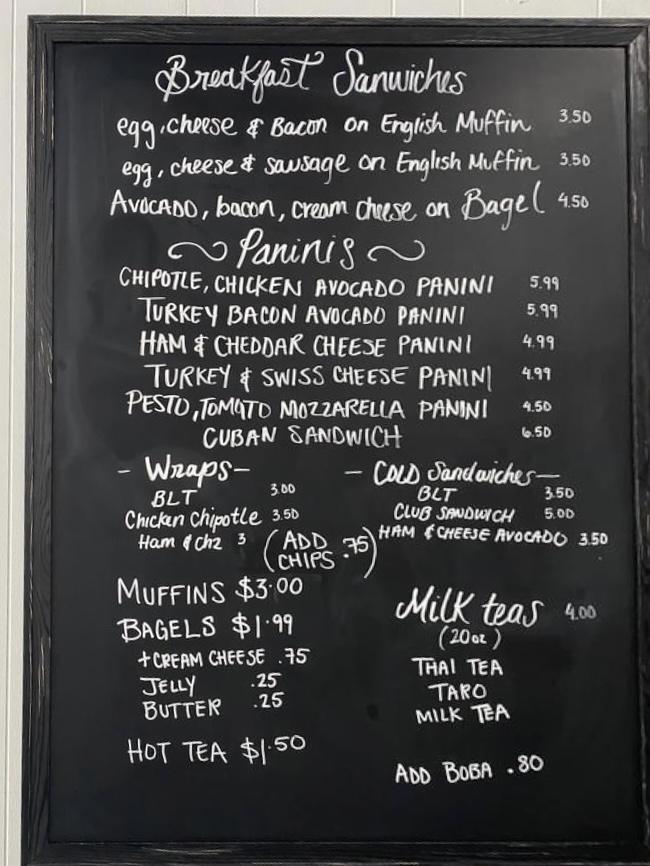 Breakfast Sanwiches
egg, cheese & Bacon on English Muffin 3.50
egg, cheese & sausage on English Muffin 3.50
AVOCADO, bacon, cream cheese on Bagel 4.50
~ Paninis ~
CHIPOTLE, CHICKEN AVOCADO PANINI 5.99
TURKEY BACON AVOCADO PANINI 5.99
HAM & CHEDDAR CHEESE PANINI 4.99
TURKEY & SWISS CHEESE PANINI 4.99
PESTO, TOMATO MOZZARELLA PANINI 4.50
CUBAN SANDWICH 6.50
- Wraps -
BLT 3.00
Chicken Chipotle 3.50
Ham & Chz 3
(ADD
CHIPS .75)
- COLD Sandwiches -
BLT 3.50
CLUB SANDWICH 5.00
HAM & CHEESE AVOCADO 3.50
MUFFINS $3.00
BAGELS $1.99
+ CREAM CHEESE .75
JELLY .25
BUTTER .25
HOT TEA $1.50
Milk teas 4.00
(20oz)
THAI TEA
TARO
MILK TEA
ADD BOBA .80